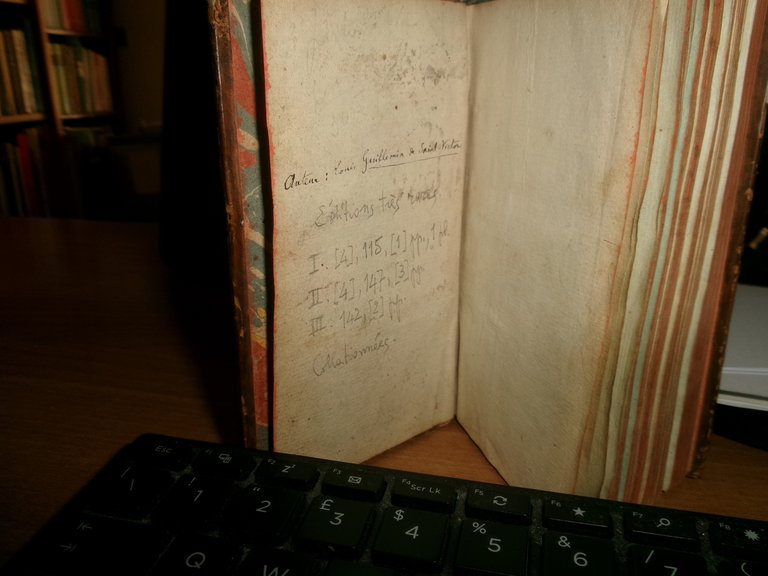 Auteur : Louis Guillemin de Saint Victor
Éditions très rares
I : [4], 115, [1] pp., 1 pl.
II : [4], 147, [3] pp.
III : 142, [2] pp.
Collationnées.
Esc F1 F2 F3 F4 Scr Lk F5 F6 F7 F8
\ ! 1 " 2 £ 3 $ 4 % 5 & 6 / 7
Q W